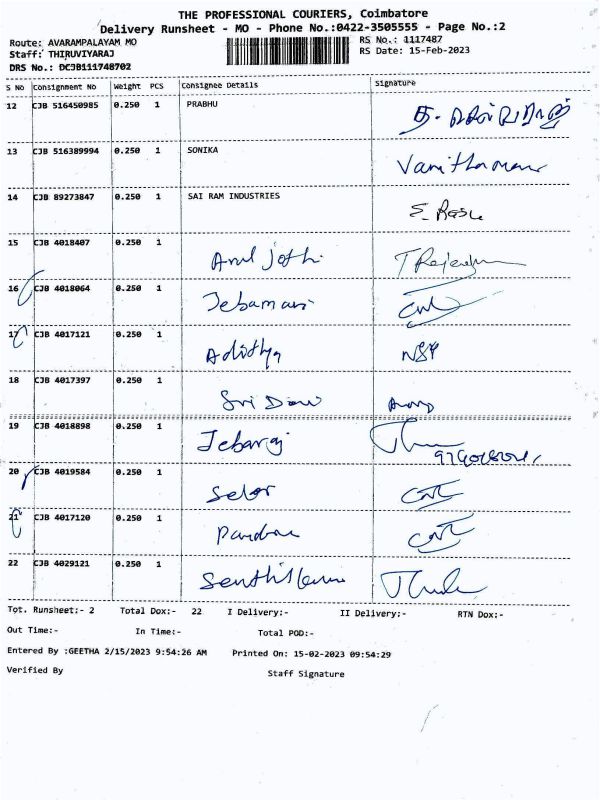 THE PROFESSIONAL COURIERS, Coimbatore
Delivery Runsheet - MO - Phone No.:0422-3505555 - Page No.:2
Route: AVARAMPALAYAM MO RS No.: 1117487
Staff: THIRUVIYARAJ RS Date: 15-Feb-2023
DRS No.: DCJB111748702
S No Consignment No Weight PCS Consignee Details Signature
12 CJB 516450985 0.250 1 PRABHU
13 CJB 516389994 0.250 1 SONIKA
14 CJB 89273847 0.250 1 SAI RAM INDUSTRIES
15 CJB 4018407 0.250 1 Arul Jothi
16 CJB 4018064 0.250 1 Jebamani
17 CJB 4017121 0.250 1 Adithya
18 CJB 4017397 0.250 1 Sri
19 CJB 4018898 0.250 1 Jebaraj
20 CJB 4019584 0.250 1
21 CJB 4017120 0.250 1
22 CJB 4029121 0.250 1
Tot. Runsheet:- 2 Total Dox:- 22 I Delivery:- II Delivery:- RTN Dox:-
Out Time:- In Time:- Total POD:-
Entered By :GEETHA 2/15/2023 9:54:26 AM Printed On: 15-02-2023 09:54:29
Verified By Staff Signature